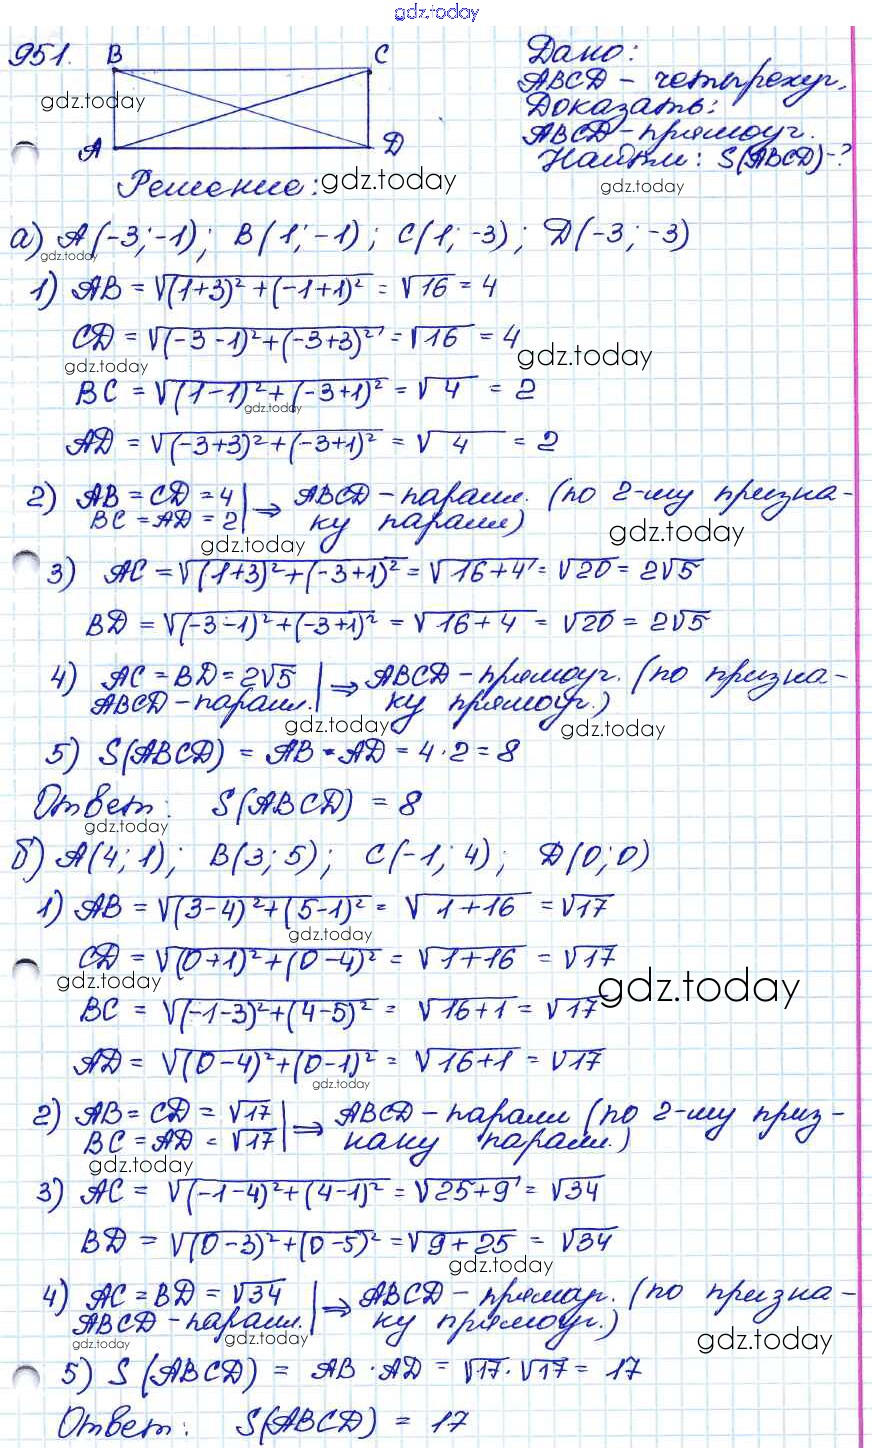 gdz.today
951. B C
A D
Дано:
ABCD - четырехуг.
Доказать:
ABCD - прямоуг.
Найти: S(ABCD) - ?
gdz.today
Решение: gdz.today
gdz.today
а) A(-3; -1); B(1; -1); C(1; -3); D(-3; -3)
gdz.today
1) AB = √(1+3)²+(-1+1)² = √16 = 4
CD = √(-3-1)²+(-3+3)² = √16 = 4
gdz.today
gdz.today
BC = √(1-1)²+(-3+1)² = √4 = 2
gdz.today
AD = √(-3+3)²+(-3+1)² = √4 = 2
2) AB = CD = 4 | ⇒ ABCD - паралл. (по 2-му призна-
BC = AD = 2 | ку паралл)
gdz.today
gdz.today
3) AC = √(1+3)²+(-3+1)² = √16+4 = √20 = 2√5
BD = √(-3-1)²+(-3+1)² = √16+4 = √20 = 2√5
4) AC = BD = 2√5 | ⇒ ABCD - прямоуг. (по призна-
ABCD - паралл. | ку прямоуг.)
gdz.today
gdz.today
5) S(ABCD) = AB · AD = 4 · 2 = 8
Ответ: S(ABCD) = 8
gdz.today
б) A(4; 1); B(3; 5); C(-1; 4); D(0; 0)
1) AB = √(3-4)²+(5-1)² = √1+16 = √17
gdz.today
CD = √(0+1)²+(0-4)² = √1+16 = √17
gdz.today
gdz.today
BC = √(-1-3)²+(4-5)² = √16+1 = √17
AD = √(0-4)²+(0-1)² = √16+1 = √17
gdz.today
2) AB = CD = √17 | ⇒ ABCD - паралл (по 2-му приз-
BC = AD = √17 | наку паралл.)
gdz.today
3) AC = √(-1-4)²+(4-1)² = √25+9 = √34
BD = √(0-3)²+(0-5)² = √9+25 = √34
gdz.today
4) AC = BD = √34 | ⇒ ABCD - прямоуг. (по призна-
ABCD - паралл. | ку прямоуг.)
gdz.today
gdz.today
gdz.today
5) S(ABCD) = AB · AD = √17 · √17 = 17
Ответ: S(ABCD) = 17